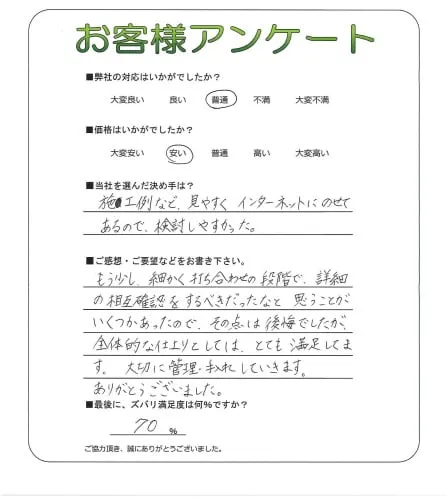 お客様アンケート
■弊社の対応はいかがでしたか？
大変良い 良い 普通 不満 大変不満
■価格はいかがでしたか？
大変安い 安い 普通 高い 大変高い
■当社を選んだ決め手は？
施工例など、見やすく インターネットにのせて
あるので、検討しやすかった。
■ご感想・ご要望などをお書き下さい。
もう少し、細かく打ち合わせの段階で、詳細
の相互確認をするべきだったなと 思うことが
いくつかあったので、その点は後悔でしたが、
全体的な仕上りとしては、とても満足してま
す。 大切に管理・手入れしていきます。
ありがとうございました。
■最後に、ズバリ満足度は何％ですか？
70 ％
ご協力頂き、誠にありがとうございました。